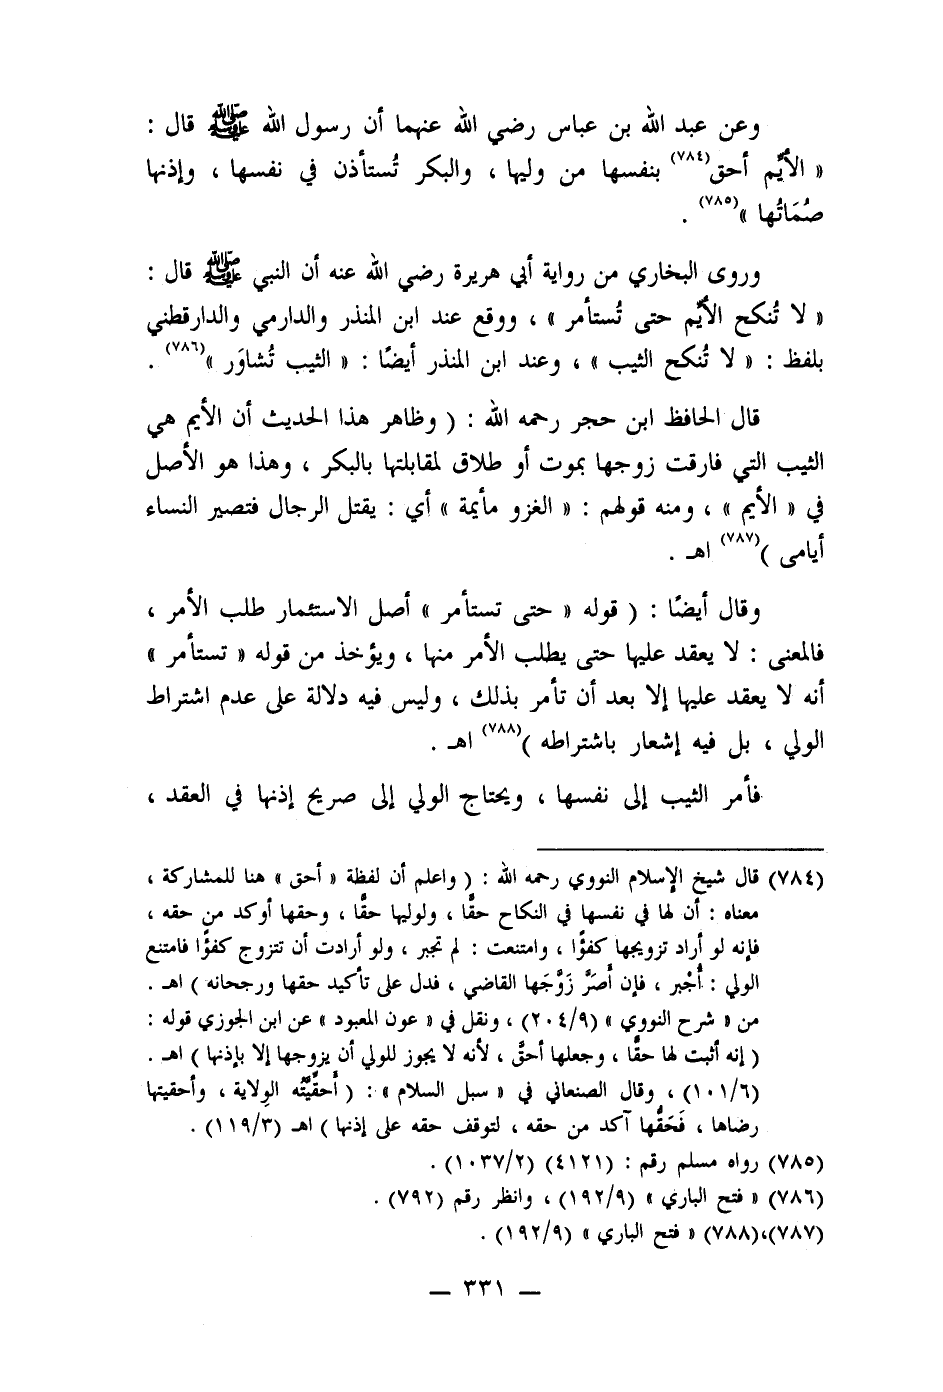 وعن عبد الله بن عباس رضي الله عنهما أن رسول الله ﷺ قال :
« الأيِّم أحق(٧٨٤) بنفسها من وليها ، والبكر تُستأذن في نفسها ، وإذنها
صُمَاتُها »(٧٨٥) .
وروى البخاري من رواية أبي هريرة رضي الله عنه أن النبي ﷺ قال :
« لا تُنكح الأيِّم حتى تُستأمر » ، ووقع عند ابن المنذر والدارمي والدارقطني
بلفظ : « لا تُنكح الثيب » ، وعند ابن المنذر أيضًا : « الثيب تُشاوَر »(٧٨٦) .
قال الحافظ ابن حجر رحمه الله : ( وظاهر هذا الحديث أن الأيم هي
الثيب التي فارقت زوجها بموت أو طلاق لمقابلتها بالبكر ، وهذا هو الأصل
في « الأيم » ، ومنه قولهم : « الغزو مأيمة » أي : يقتل الرجال فتصير النساء
أيامى )(٧٨٧) اهـ .
وقال أيضًا : ( قوله « حتى تستأمر » أصل الاستئمار طلب الأمر ،
فالمعنى : لا يعقد عليها حتى يطلب الأمر منها ، ويؤخذ من قوله « تستأمر »
أنه لا يعقد عليها إلا بعد أن تأمر بذلك ، وليس فيه دلالة على عدم اشتراط
الولي ، بل فيه إشعار باشتراطه )(٧٨٨) اهـ .
فأمر الثيب إلى نفسها ، ويحتاج الولي إلى صريح إذنها في العقد ،
(٧٨٤) قال شيخ الإسلام النووي رحمه الله : ( واعلم أن لفظة « أحق » هنا للمشاركة ،
معناه : أن لها في نفسها في النكاح حقًّا ، ولوليها حقًّا ، وحقها أوكد من حقه ،
فإنه لو أراد تزويجها كفؤًا ، وامتنعت : لم تجبر ، ولو أرادت أن تتزوج كفؤًا فامتنع
الولي : أُجْبر ، فإن أَصَرَّ زَوَّجَها القاضي ، فدل على تأكيد حقها ورجحانه ) اهـ .
من « شرح النووي » (٢٠٤/٩) ، ونقل في « عون المعبود » عن ابن الجوزي قوله :
( إنه أثبت لها حقًّا ، وجعلها أحقَّ ، لأنه لا يجوز للولي أن يزوجها إلا بإذنها ) اهـ .
(١٠١/٦) ، وقال الصنعاني في « سبل السلام » : ( أَحقِّيَّتُه الوِلاية ، وأحقيتها
رضاها ، فَحَقُّها آكد من حقه ، لتوقف حقه على إذنها ) اهـ (١١٩/٣) .
(٧٨٥) رواه مسلم رقم : (٤١٢١) (١٠٣٧/٢) .
(٧٨٦) « فتح الباري » (١٩٢/٩) ، وانظر رقم (٧٩٢) .
(٧٨٧)،(٧٨٨) « فتح الباري » (١٩٢/٩) .
— ٣٣١ —